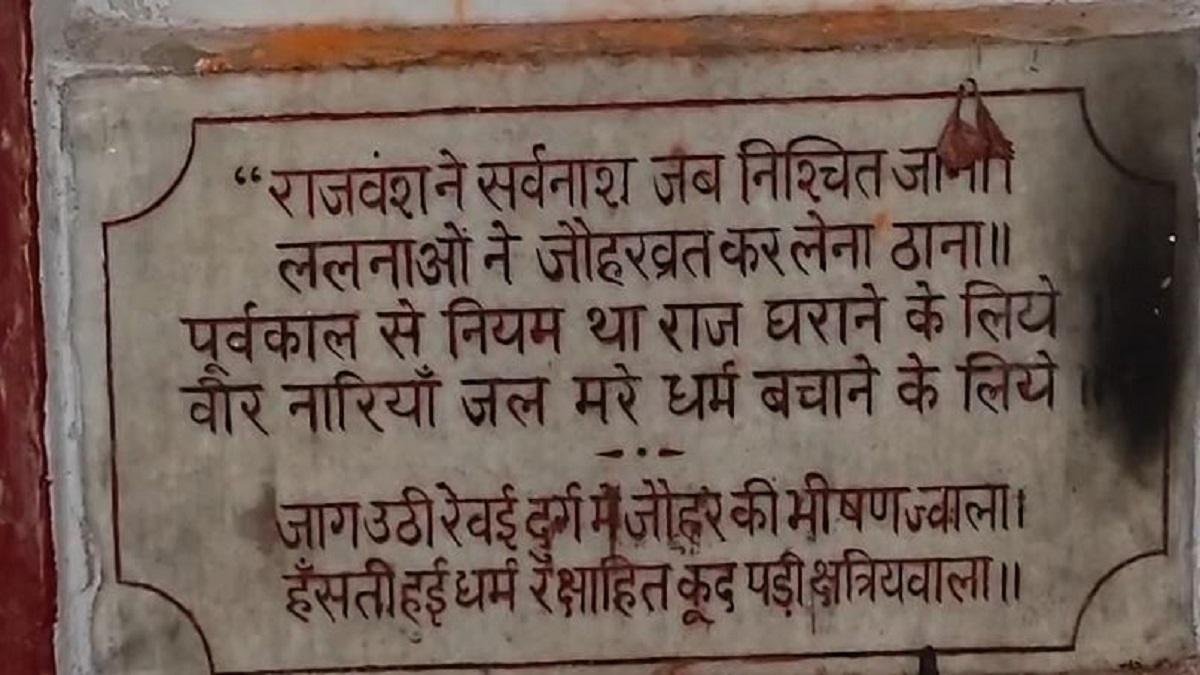 “राजवंश ने सर्वनाश जब निश्चित जाना।
ललनाओं ने जौहरव्रत कर लेना ठाना॥
पूर्वकाल से नियम था राज घराने के लिये
वीर नारियाँ जल मरे धर्म बचाने के लिये
जाग उठी रे वई दुर्ग में जौहर की भीषण ज्वाला।
हँसती हुई धर्म रक्षाहित कूद पड़ी क्षत्रियवाला॥